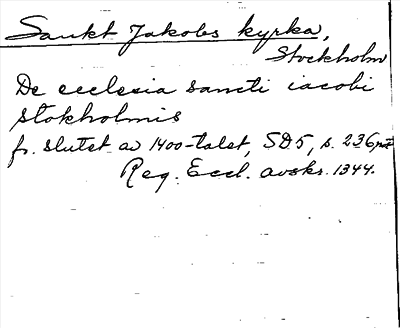 Sankt Jakobs kyrka,
Stockholm
De ecclesia sancti iacobi
stokholmis
fr. slutet av 1400-talet, SD5, s. 236
Reg. Eccl. avskr. 1344.